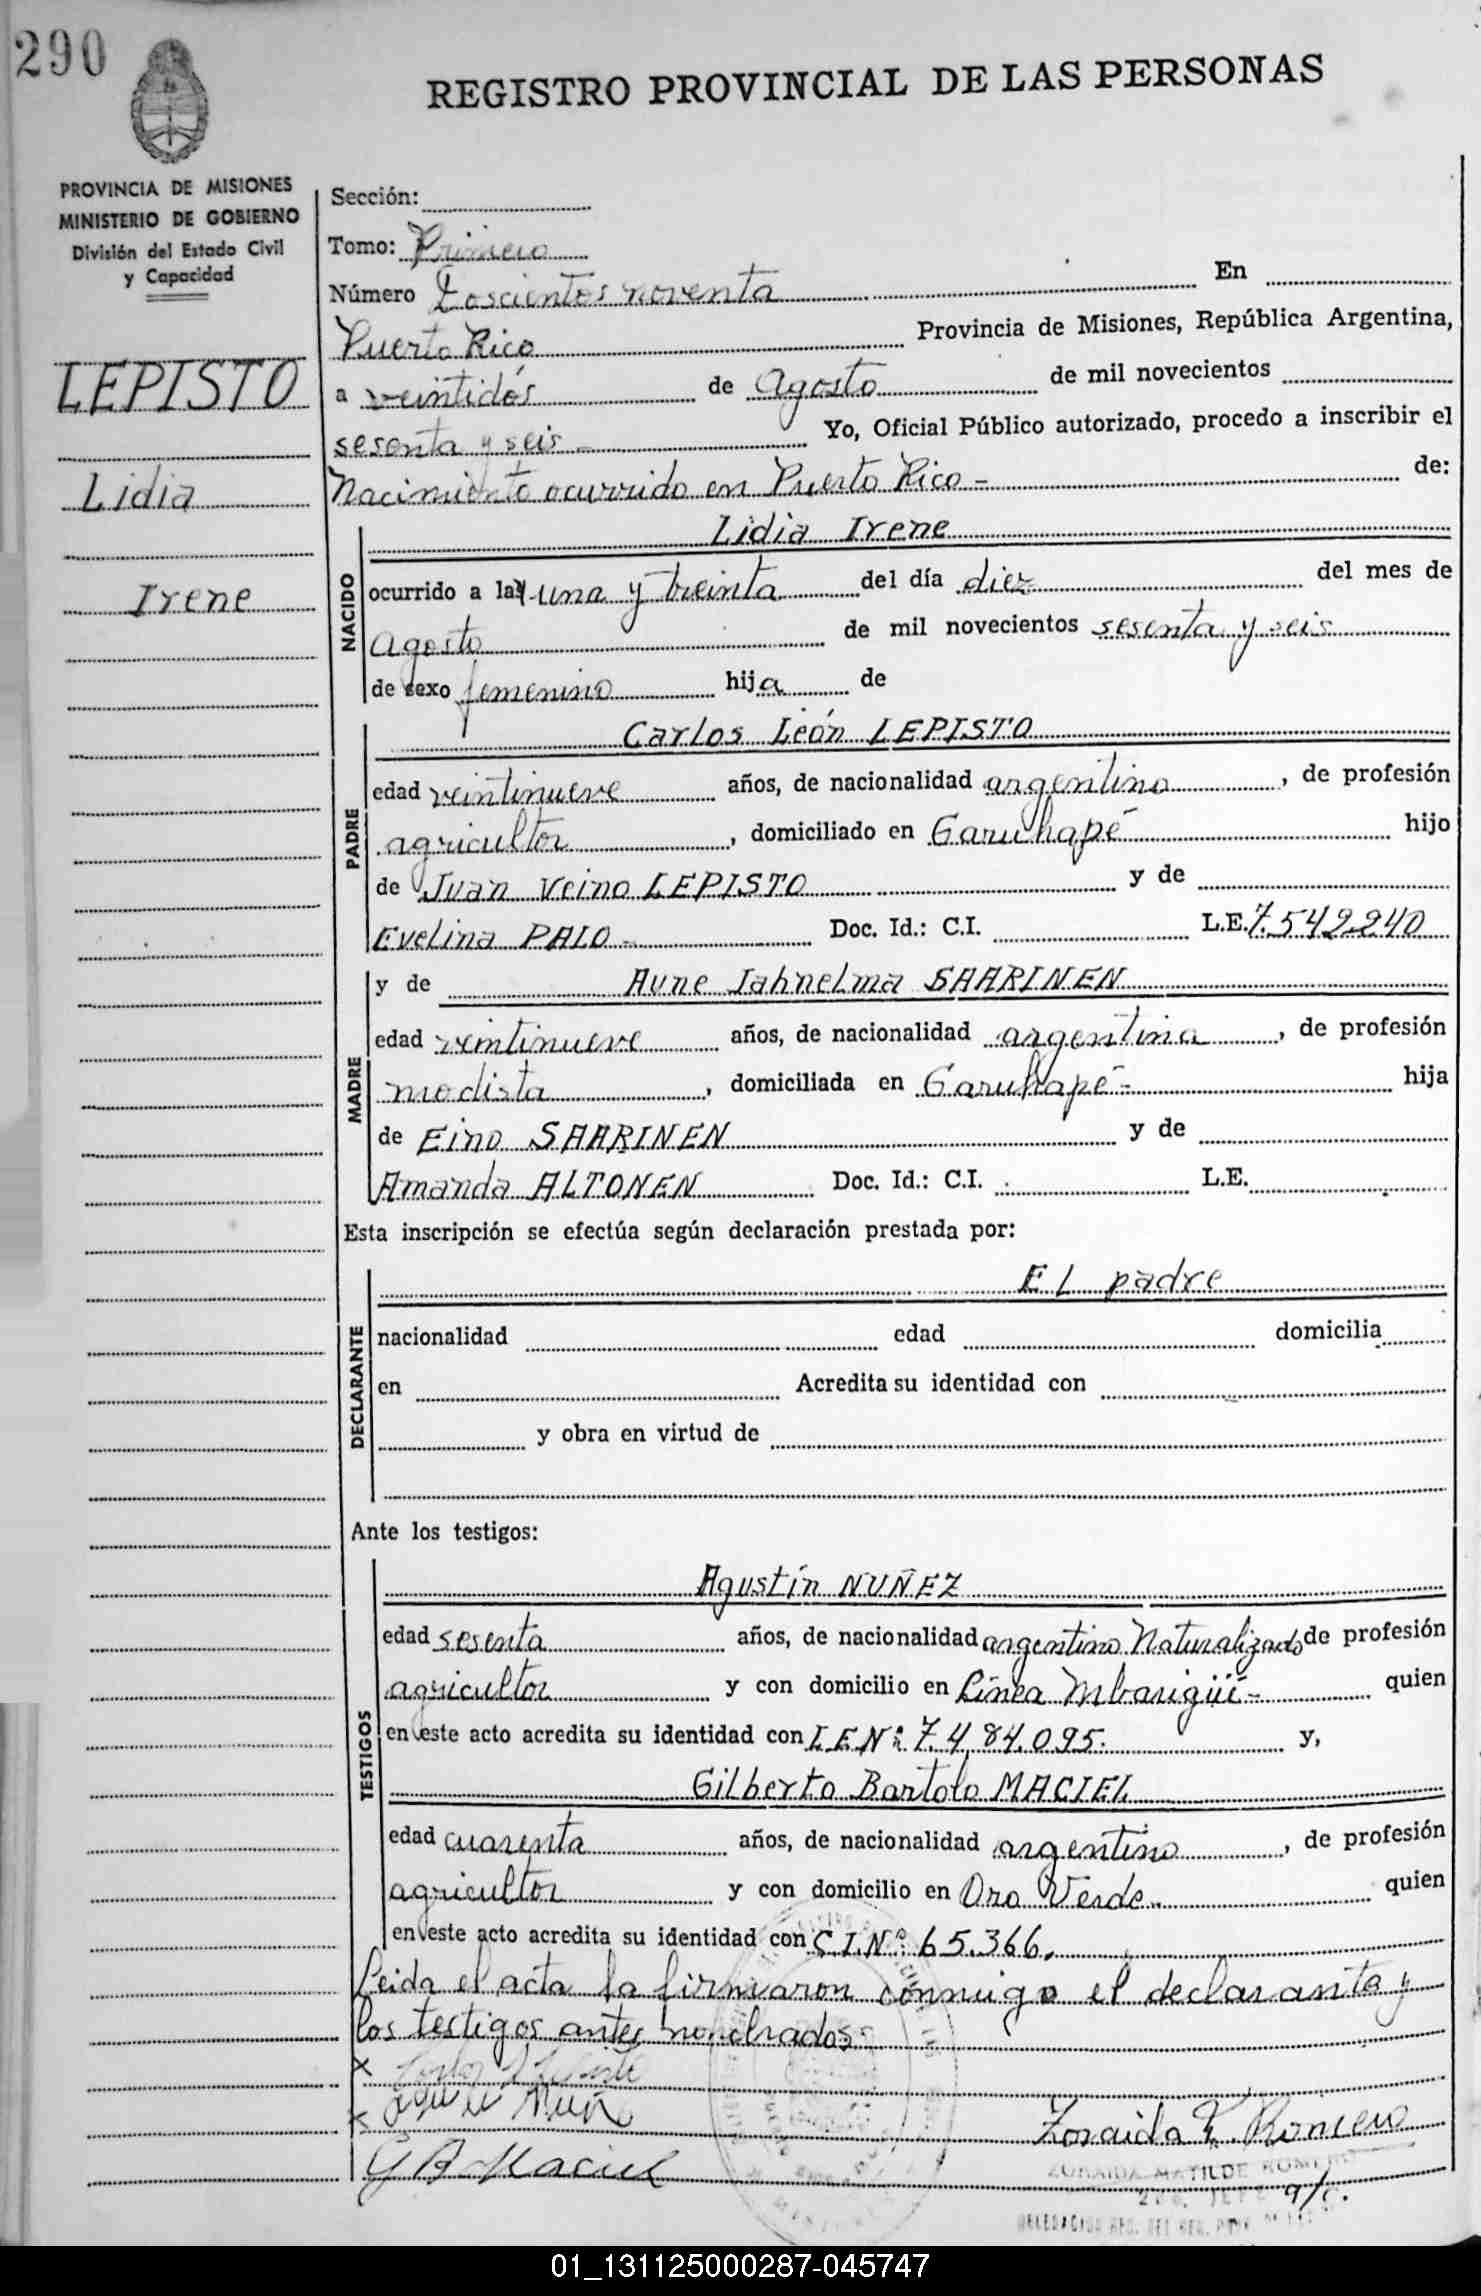 290
REGISTRO PROVINCIAL DE LAS PERSONAS
PROVINCIA DE MISIONES
MINISTERIO DE GOBIERNO
División del Estado Civil
y Capacidad
LEPISTO
Lidia
Irene
Sección:
Tomo: Primero
Número Doscientos noventa En
Puerto Rico Provincia de Misiones, República Argentina,
a veintidós de Agosto de mil novecientos
sesenta y seis - Yo, Oficial Público autorizado, procedo a inscribir el
Nacimiento ocurrido en Puerto Rico - de:
NACIDO
Lidia Irene
ocurrido a las una y treinta del día diez del mes de
Agosto de mil novecientos sesenta y seis
de sexo femenino hija de
PADRE
Carlos León LEPISTO
edad veintinueve años, de nacionalidad argentino, de profesión
agricultor, domiciliado en Garuhapé hijo
de Juan Veino LEPISTO y de
Evelina PALO - Doc. Id.: C.I. L.E. 7.542.240
MADRE
y de Aune Jahnelma SAARINEN
edad veintinueve años, de nacionalidad argentina, de profesión
modista, domiciliada en Garuhapé - hija
de Eino SAARINEN y de
Amanda ALTONEN Doc. Id.: C.I. L.E.
Esta inscripción se efectúa según declaración prestada por:
DECLARANTE
El padre
nacionalidad edad domicilia
en Acredita su identidad con
y obra en virtud de
Ante los testigos:
TESTIGOS
Agustín NUÑEZ
edad sesenta años, de nacionalidad argentino Naturalizado de profesión
agricultor y con domicilio en Línea Mbarigüí - quien
en este acto acredita su identidad con L E Nº 7.484.095. y,
Gilberto Bartolo MACIEL
edad cuarenta años, de nacionalidad argentino, de profesión
agricultor y con domicilio en Oro Verde quien
en este acto acredita su identidad con C.I.Nº 65.366.
Leida el acta la firmaron conmigo el declarante y
los testigos antes nombrados -
G B Maciel
Zoraida M. Romero
ZORAIDA MATILDE ROMERO
a/c.
01_131125000287-045747